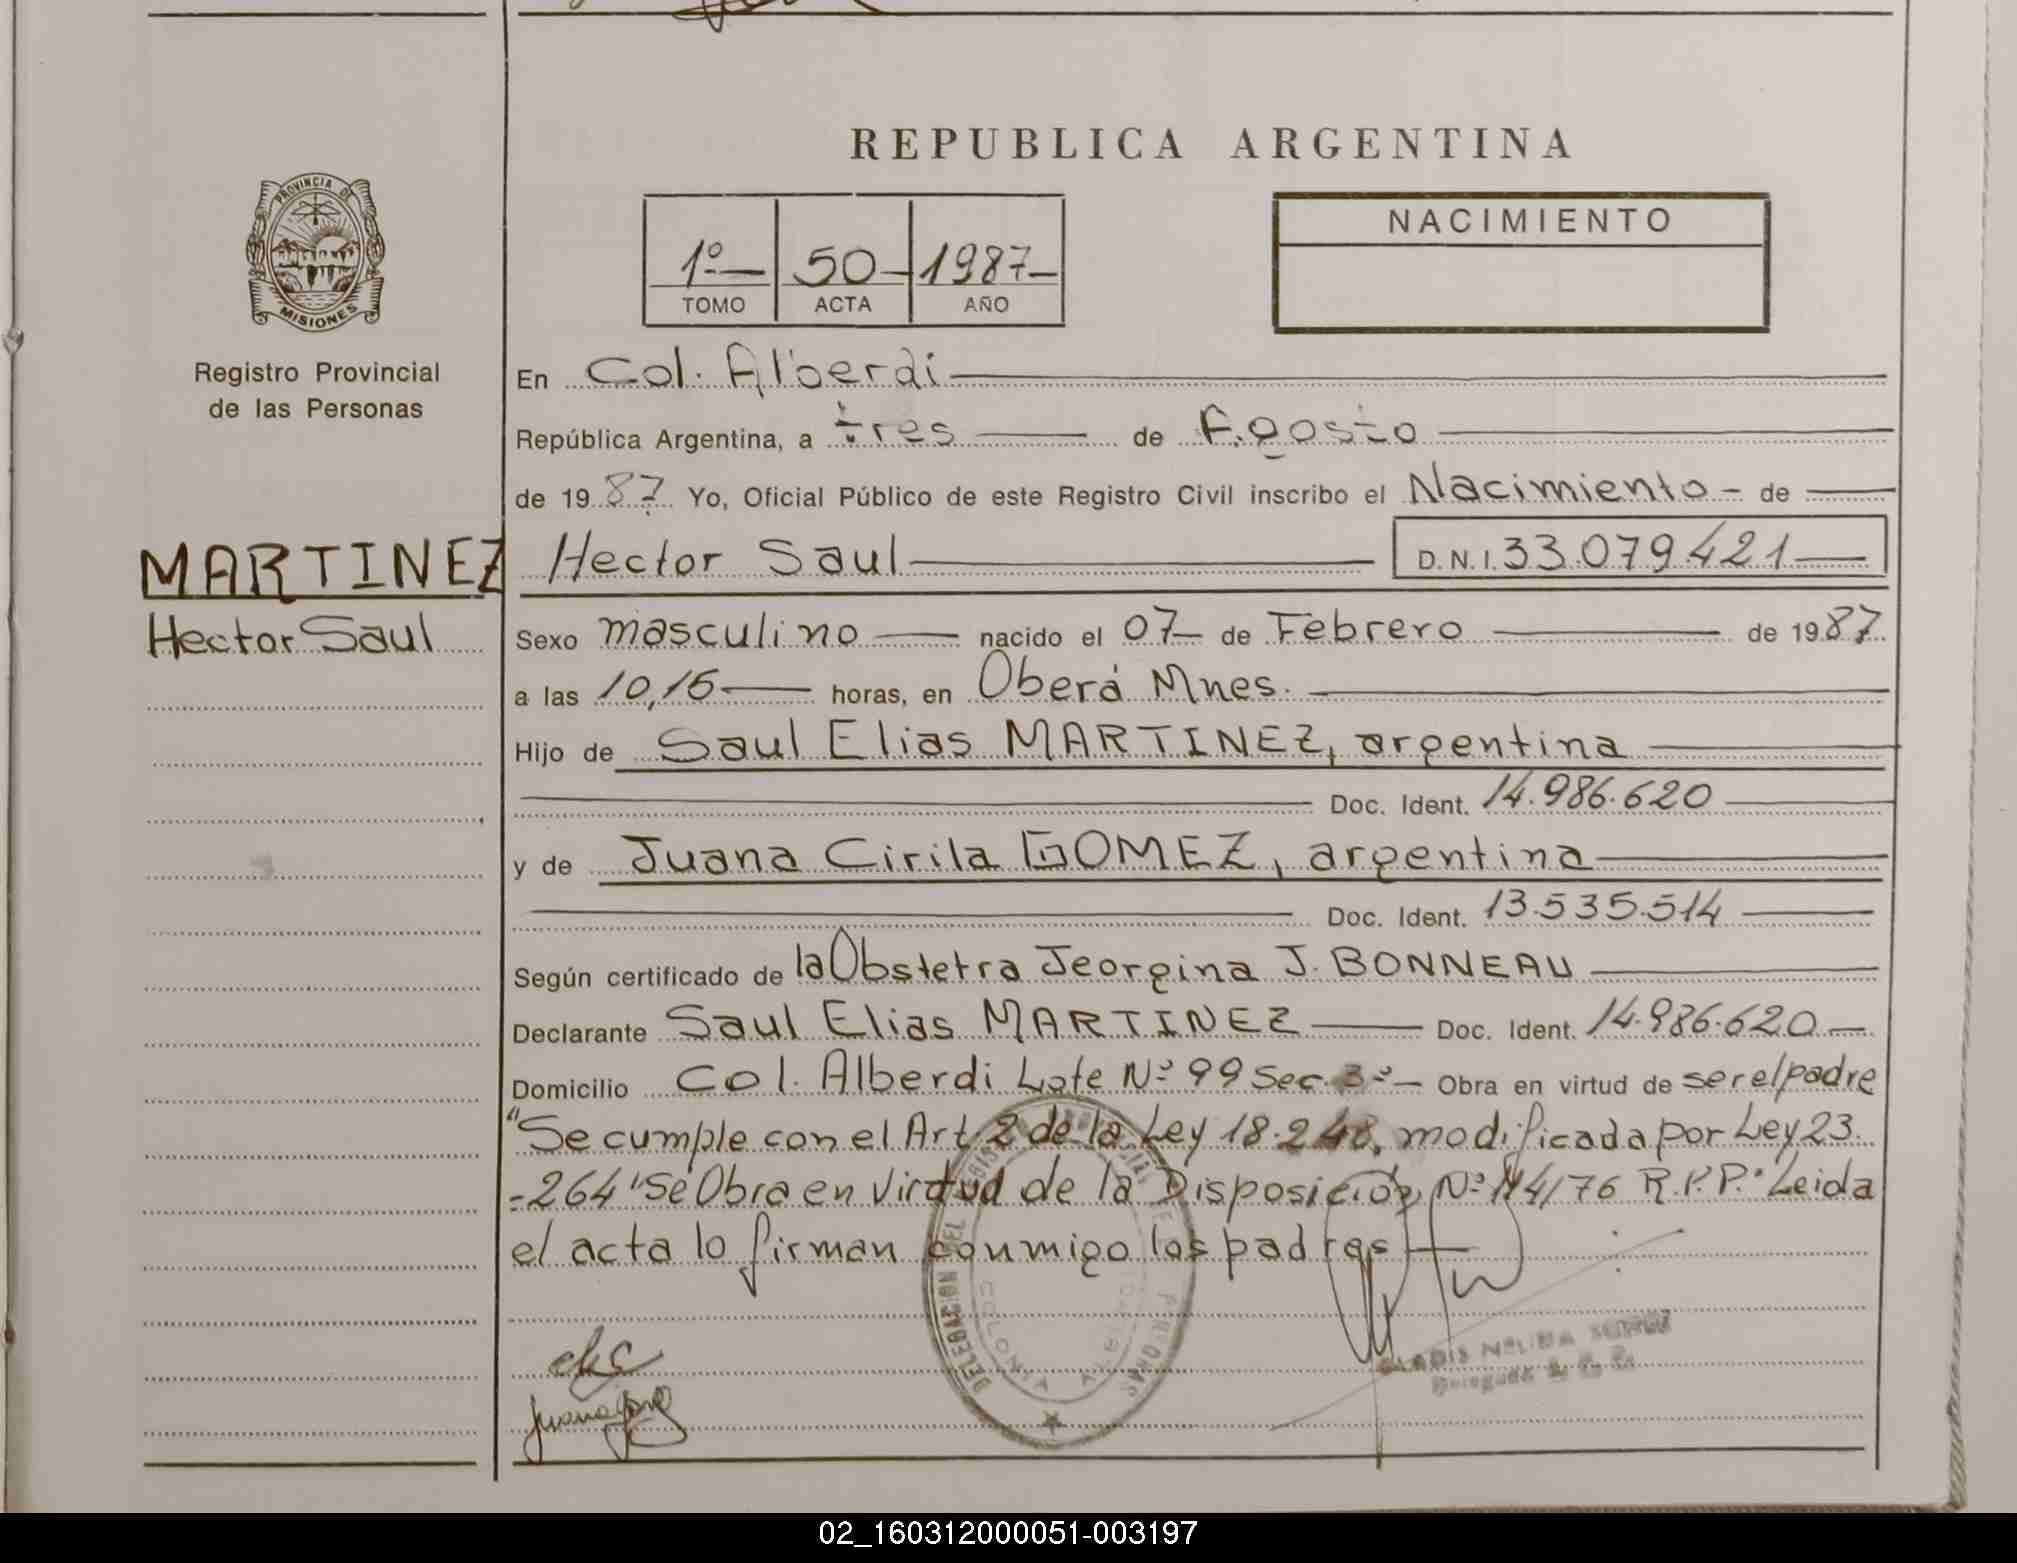 REPUBLICA ARGENTINA
PROVINCIA DE
MISIONES
Registro Provincial
de las Personas
1º
50
1987
TOMO
ACTA
AÑO
NACIMIENTO
En Col. Alberdi
República Argentina, a tres de Agosto
de 1987 Yo, Oficial Público de este Registro Civil inscribo el Nacimiento - de
MARTINEZ
Hector Saul
Hector Saul D.N.I. 33.079.421
Sexo masculino nacido el 07 de Febrero de 1987
a las 10,15 horas, en Oberá Mnes.
Hijo de Saul Elias MARTINEZ, argentina
Doc. Ident. 14.986.620
y de Juana Cirila GOMEZ, argentina
Doc. Ident. 13.535.514
Según certificado de la Obstetra Jeorgina J. BONNEAU
Declarante Saul Elias MARTINEZ Doc. Ident. 14.986.620
Domicilio Col. Alberdi Lote Nº 99 Sec. 3º Obra en virtud de ser el padre
"Se cumple con el Art 2 de la Ley 18.248, modificada por Ley 23.
-264" Se Obra en virtud de la Disposición Nº 114/76 R.P.P." Leida
el acta lo firman conmigo los padres
DELEGACION DEL
COLONIA
PERSONAS
GLADIS NELIDA
Delegada
02_160312000051-003197